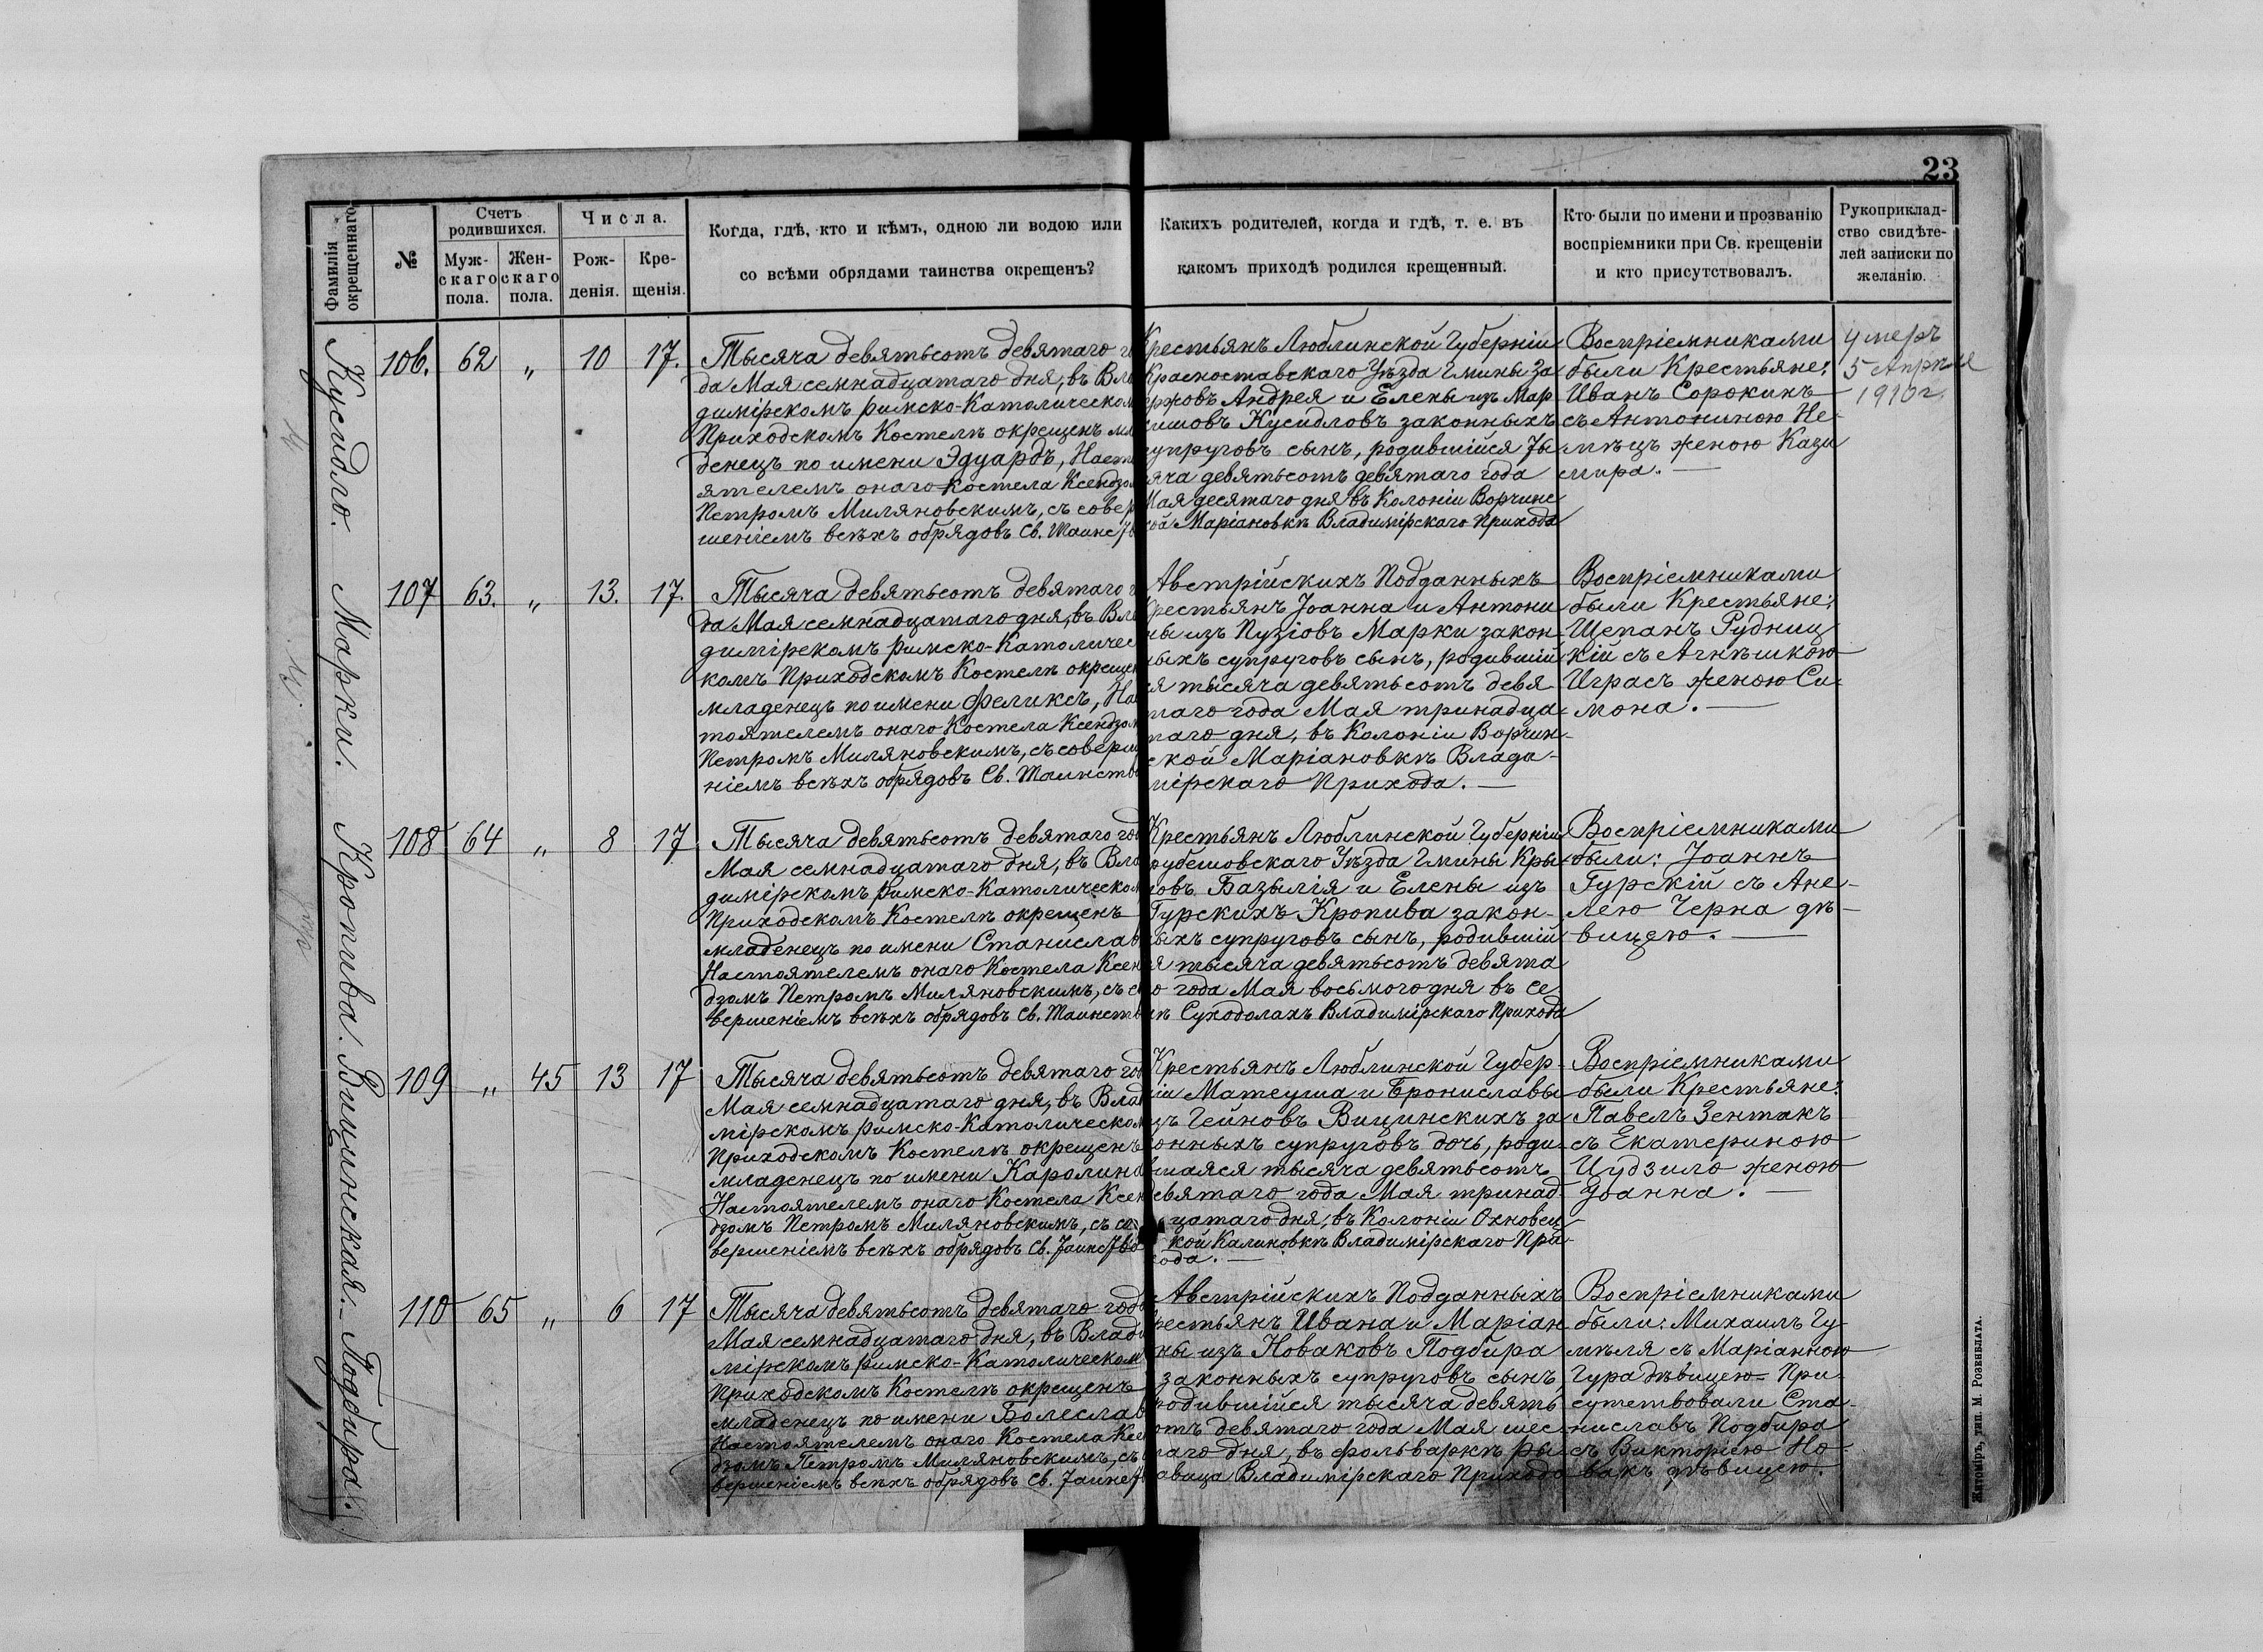 23
Фамилія окрещеннаго
№
Счетъ родившихся.
Муж-
скаго
пола.
Жен-
скаго
пола.
Числа.
Рож-
денія.
Кре-
щенія.
Когда, гдѣ, кто и кѣмъ, одною ли водою или
со всѣми обрядами таинства окрещенъ?
Какихъ родителей, когда и гдѣ, т. е. въ
какомъ приходѣ родился крещенный.
Кто были по имени и прозванію
воспріемники при Св. крещеніи
и кто присутствовалъ.
Рукоприклад-
ство свидѣте-
лей записки по
желанію.
Кусидло.
106. 62 „ 10 17.
Тысяча девятьсотъ девятаго го
да Мая семнадцатаго дня, въ Вла
димірскомъ римско-Католическом
Приходскомъ Костелѣ окрещенъ мла
денецъ по имени Эдуардъ, Насто
ятелемъ онаго Костела Ксендзом
Петромъ Миляновскимъ, съ совер
шеніемъ всѣхъ обрядовъ Св. Таинст
Крестьянъ Люблинской Губерніи
Красноставскаго Уѣзда Гмины За
ржовъ Андрея и Елены изъ Мар
сишовъ Кусидловъ законныхъ
супруговъ сынъ, родившійся ты
яча девятьсотъ девятаго года
Мая десятаго дня въ Колоніи Ворчинс
кой Маріановкѣ Владимірскаго Прихода
Воспріемниками
были Крестьяне:
Иванъ Сорокинъ
съ Антониною Не-
мѣцъ женою Кази
мира. —
Умеръ
5 Апрѣля
1910 г.
Марки.
107 63. „ 13. 17.
Тысяча девятьсотъ девятаго г
да Мая семнадцатаго дня, въ Вла
димірскомъ римско-Католичес
комъ Приходскомъ Костелѣ окрещен
младенецъ по имени Феликсъ, Нас
тоятелемъ онаго Костела Ксендзом
Петромъ Миляновскимъ, съ соверше
ніемъ всѣхъ обрядовъ Св. Таинства
Австрійскихъ Подданныхъ
Крестьянъ Іоанна и Антони
ны изъ Пузіовъ Марки закон-
ныхъ супруговъ сынъ, родившій
ся тысяча девятьсотъ девя-
таго года Мая тринадца-
таго дня, въ Колоніи Ворчин-
ской Маріановкѣ Влади-
мірскаго Прихода. —
Воспріемниками
были Крестьяне:
Щепанъ Рудниц
кій съ Агнѣшкою
Играсъ женою Си-
мона. —
Кропива.
108 64 „ 8 17
Тысяча девятьсотъ девятаго год
Мая семнадцатаго дня, въ Вла
димірскомъ римско-Католическом
Приходскомъ Костелѣ окрещенъ
младенецъ по имени Станислав
Настоятелемъ онаго Костела Ксен
дзомъ Петромъ Миляновскимъ, съ со
вершеніемъ всѣхъ обрядовъ Св. Таинств
Крестьянъ Люблинской Губерніи
рубешовскаго Уѣзда Гмины Кры
ловъ Базылія и Елены изъ
Гурскихъ Кропива закон-
ныхъ супруговъ сынъ, родившій
ся тысяча девятьсотъ девята
го года Мая восьмого дня въ се
лѣ Суходолахъ Владимірскаго Прихода
Воспріемниками
были: Іоаннъ
Гурскій съ Ане-
лею Черна дѣ-
вицею. —
Вицинская.
109 „ 45 13 17
Тысяча девятьсотъ девятаго год
Мая семнадцатаго дня, въ Влади
мірскомъ римско-Католическом
Приходскомъ Костелѣ окрещенъ
младенецъ по имени Каролина
Настоятелемъ онаго Костела Ксен
дзомъ Петромъ Миляновскимъ, съ со
вершеніемъ всѣхъ обрядовъ Св. Таинства
Крестьянъ Люблинской Губер-
ніи Матеуша и Брониславы
изъ Гейновъ Вицинскихъ за
конныхъ супруговъ дочь, роди-
вшаяся тысяча девятьсотъ
девятаго года Мая тринад
цатаго дня, въ Колоніи Охновец-
кой Калиновкѣ Владимірскаго При-
хода. —
Воспріемниками
были Крестьяне:
Павелъ Зентакъ
съ Екатериною
Чудзило женою
Іоанна. —
Подбира.
110 65 „ 6 17
Тысяча девятьсотъ девятаго года
Мая семнадцатаго дня, въ Влади
мірскомъ римско-Католическом
Приходскомъ Костелѣ окрещенъ
младенецъ по имени Болеслав
Настоятелемъ онаго Костела Ксе
дзомъ Петромъ Миляновскимъ, съ
вершеніемъ всѣхъ обрядовъ Св. Таинст
Австрійскихъ Подданныхъ
Крестьянъ Ивана и Маріан
ны изъ Новаковъ Подбира
законныхъ супруговъ сынъ
родившійся тысяча девять
отъ девятаго года Мая шес
таго дня, въ фольваркѣ Ры
авица Владимірскаго Прихода
Воспріемниками
были: Михаилъ Гу-
мѣля съ Маріанною
Гура дѣвицею. При-
сутствовали Ста-
ниславъ Подбира
съ Викторіею Но-
вакъ дѣвицею.
Житоміръ, тип. М. Розенблата.